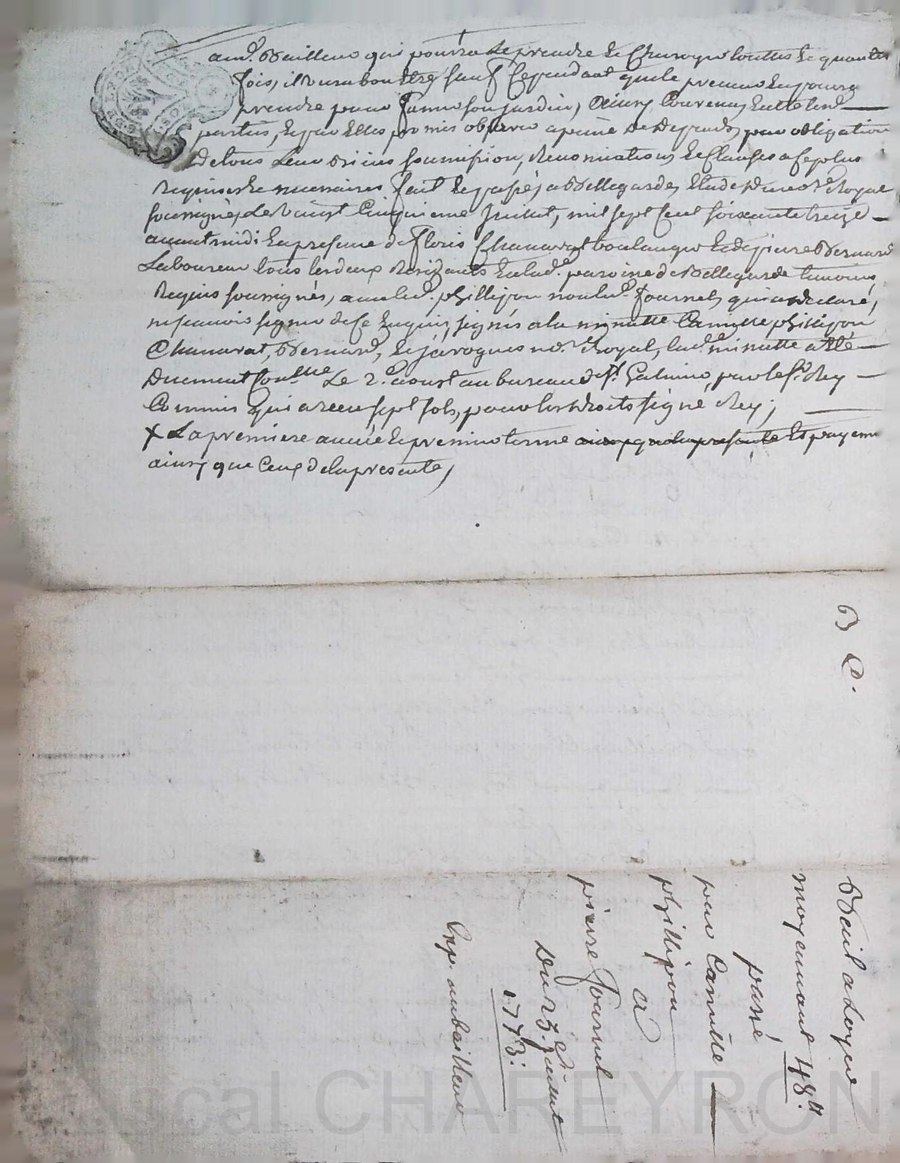 aud. Bailleur qui pourra le prendre
fois, il sauf cependant que le preneur
prendre pour fumer son jardin,
parties, et par elles promis observer a peine de depends, par obligation
de tous leurs biens soumission, Renonciations et Clauses a ce plus
Requises et necessaires fait et passé, a Bellegarde, Royal
soussigné, Le vingt Cinquieme Juillet, mil sept Cent soixante treize
avant midi En presence de floris Chanavat boulanger et de pierre Bernard
Laboureur tous les deux Residants En lad. paroisse de Bellegarde temoins
Requis soussignés, avec led. phillipon non led. Fournel, qui a declaré,
ne scavoir signer de ce Enquis, signés a la minutte Camille phillipon
Chanavat, Bernard, Royal, lad. minutte a Eté
Duement Con.lée Le 2.e aoust au bureau de St. Galmier, par le Sr. Rey
Commis qui a receu sept sols, pour les droits signé Rey;
X La premiere année et premier terme ainsy que la presente Et payem
ainsy que Ceux de la presente,
63
Bail a Loyer
moyennant 48.tt
passé
par Camille
phillipon
a
pierre Fournel
Du 25. Juillet
1773.
Exp. au bailleur
Pascal CHAREYRON